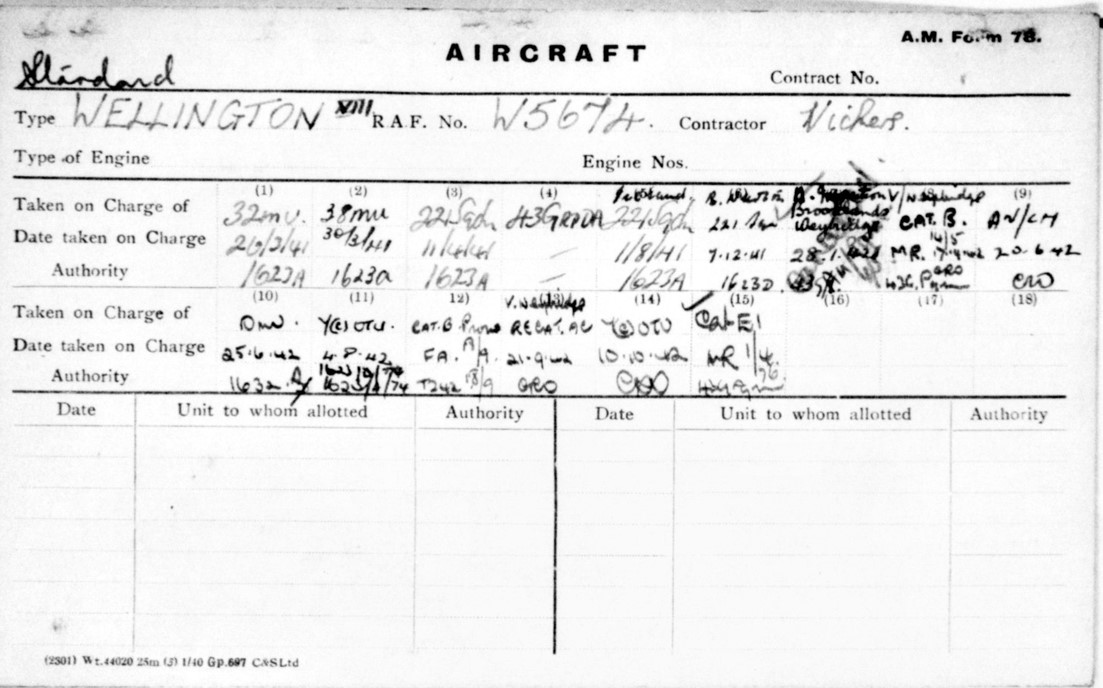 A.M. Form 78.
AIRCRAFT
Standard
Contract No.
Type WELLINGTON VIII R.A.F. No. W5674. Contractor Vickers.
Type of Engine Engine Nos.
(1) (2) (3) (4) (9)
Taken on Charge of 32mu. 38mu 221Sqdn 43GRPDA 221Sqdn 221 Weybridge CAT. B. AV/CH
Date taken on Charge 30/3/41 11/4/41 — 1/8/41 7.12.41 28.1. MR. 20.6.42
Authority 1623A 1623a 1623A — 1623A 1623D
(10) (11) 12) (14) (15) (16) (17) (18)
V. Weybridge
Taken on Charge of Omu. 7(C)OTU. CAT.B RECAT. AC 7(C)OTU Cat E1
Date taken on Charge 25.6.42 4.8.42 FA. 21.9.42 10.10.42 MR 1/4
Authority 1632 T242 18/9 GRO
Date Unit to whom allotted Authority Date Unit to whom allotted Authority
(2301) Wt.44020 25m (3) 1/40 Gp.697 C&SLtd